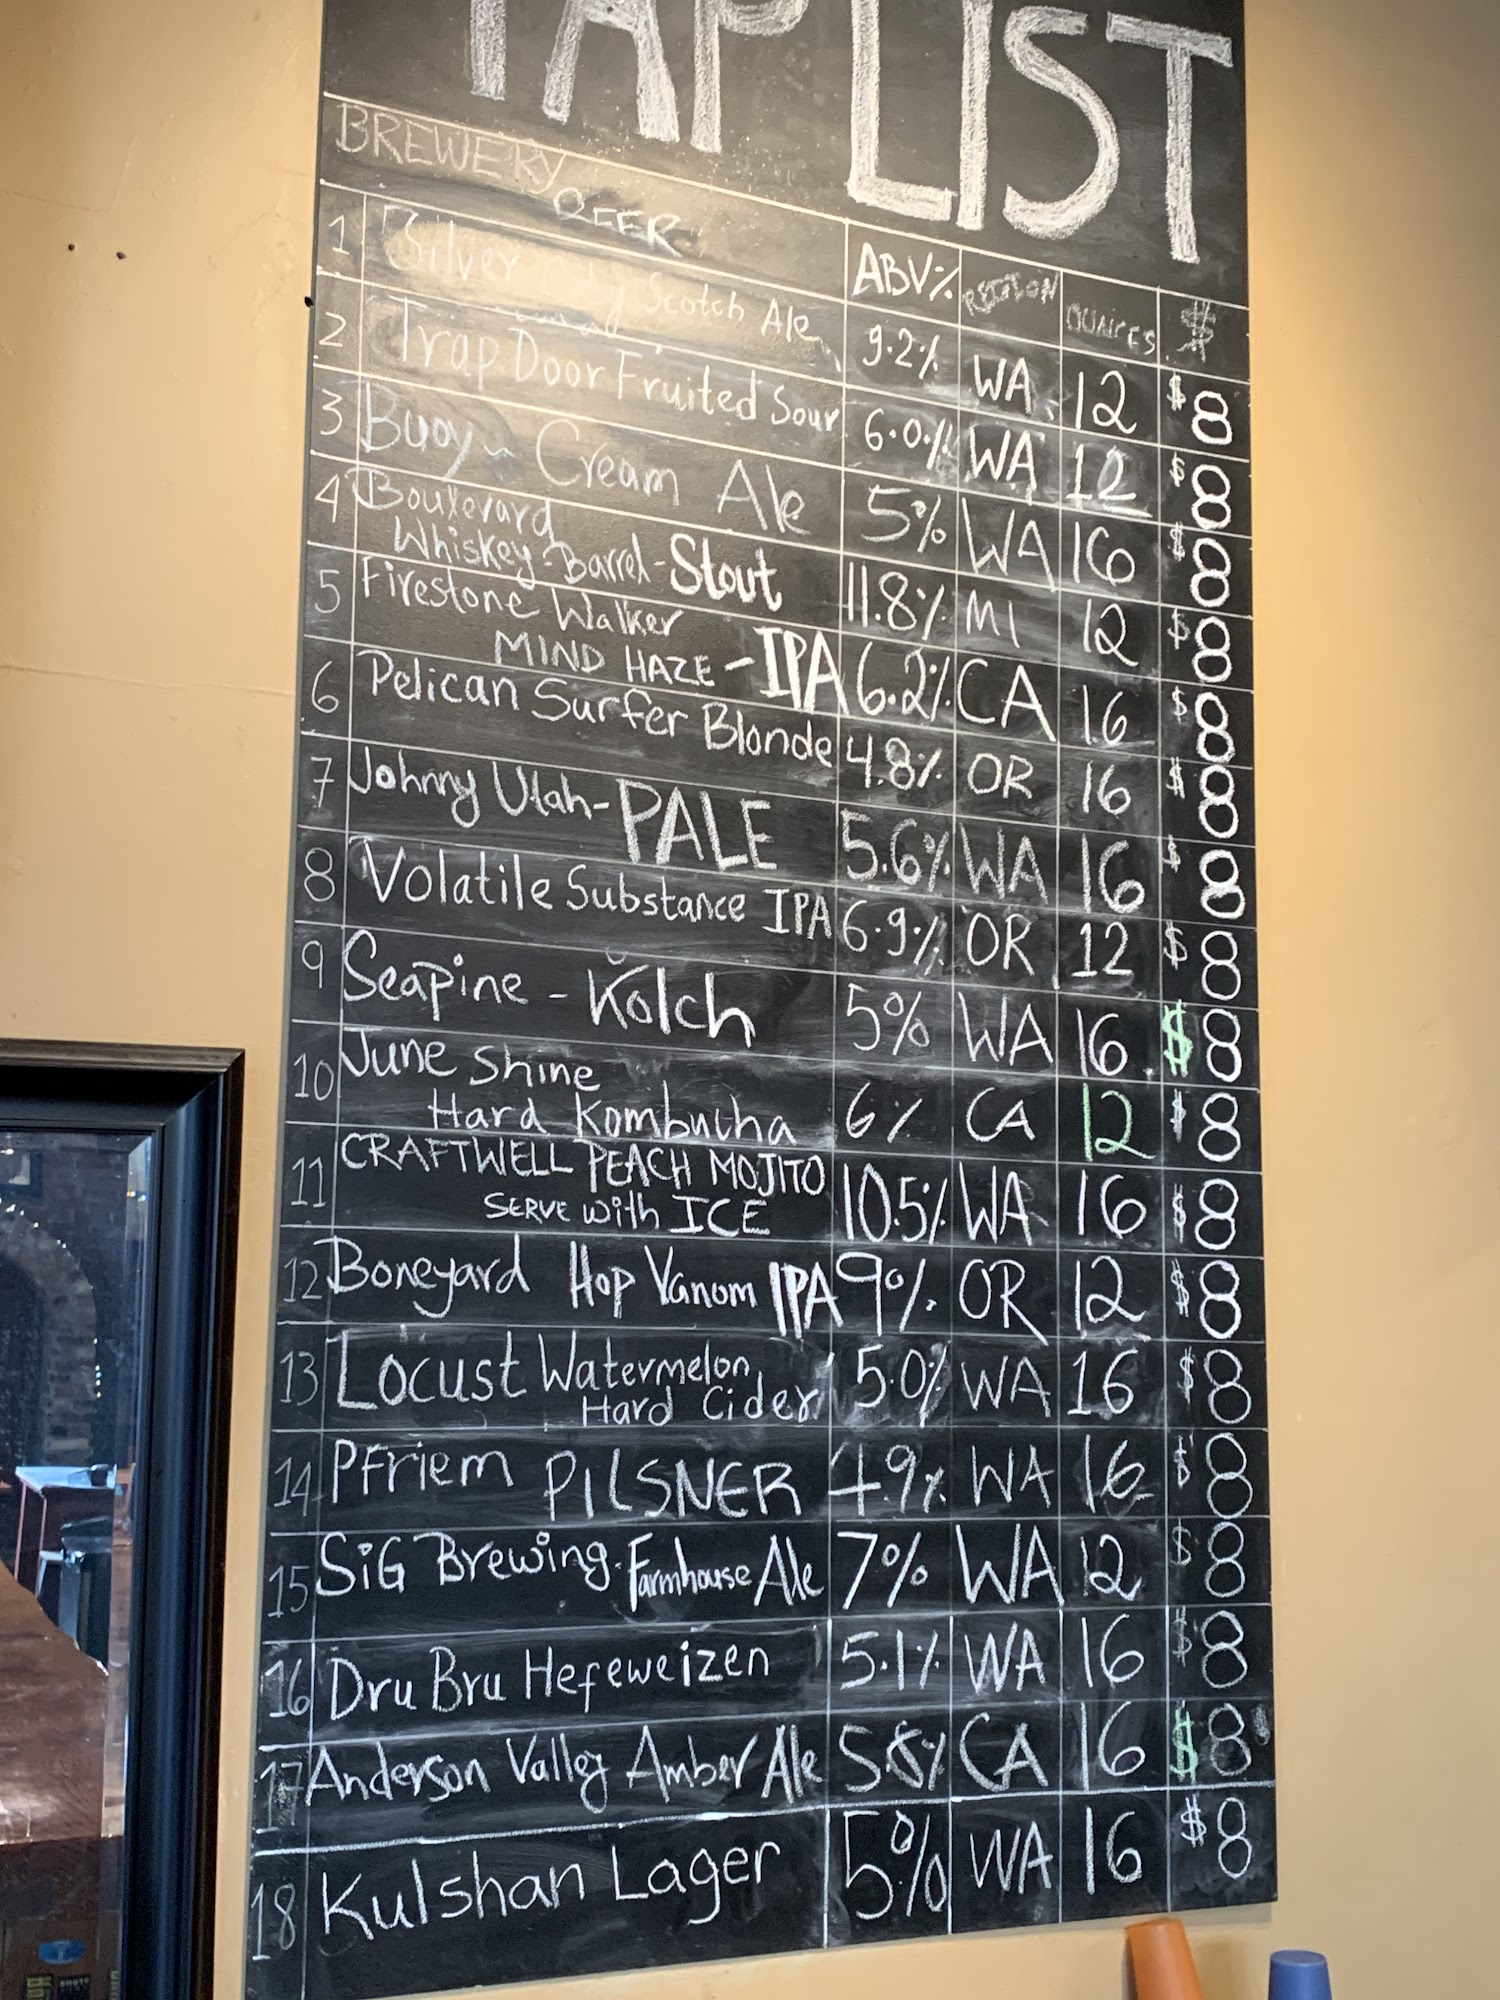 TAP LIST
BREWERY BEER ABV% REGION OUNCES $
1 Silver City Scotch Ale 9.2% WA 12 $8
2 Trap Door Fruited Sour 6.0% WA 12 $8
3 Buoy - Cream Ale 5% WA 16 $8
4 Boulevard
Whiskey-Barrel-Stout 11.8% MI 12 $8
5 Firestone Walker
MIND HAZE - IPA 6.2% CA 16 $8
6 Pelican Surfer Blonde 4.8% OR 16 $8
7 Johnny Utah - PALE 5.6% WA 16 $8
8 Volatile Substance IPA 6.9% OR 12 $8
9 Seapine - Kolch 5% WA 16 $8
10 June Shine
Hard Kombucha 6% CA 12 $8
11 CRAFTWELL PEACH MOJITO
SERVE with ICE 10.5% WA 16 $8
12 Boneyard Hop Vanom IPA 9% OR 12 $8
13 Locust Watermelon
Hard Cider 5.0% WA 16 $8
14 Pfriem PILSNER 4.9% WA 16 $8
15 SiG Brewing-Farmhouse Ale 7% WA 12 $8
16 Dru Bru Hefeweizen 5.1% WA 16 $8
17 Anderson Valley Amber Ale 5.8% CA 16 $8
18 Kulshan Lager 5% WA 16 $8